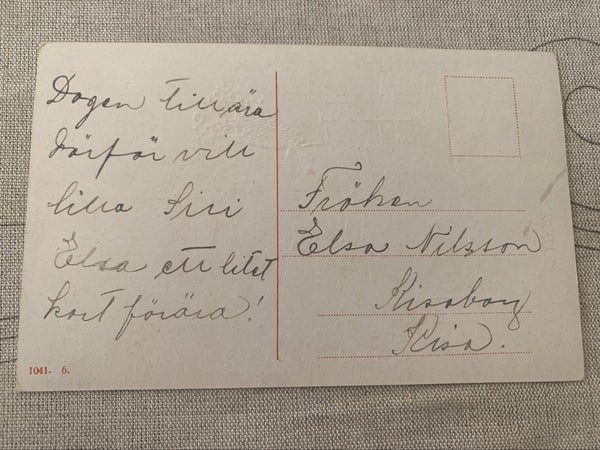 Dagen till ära
därför vill
lilla Siri
Elsa ett litet
kort förära!
Fröken
Elsa Nilsson
Kisaborg
Kisa.
1041. 6.